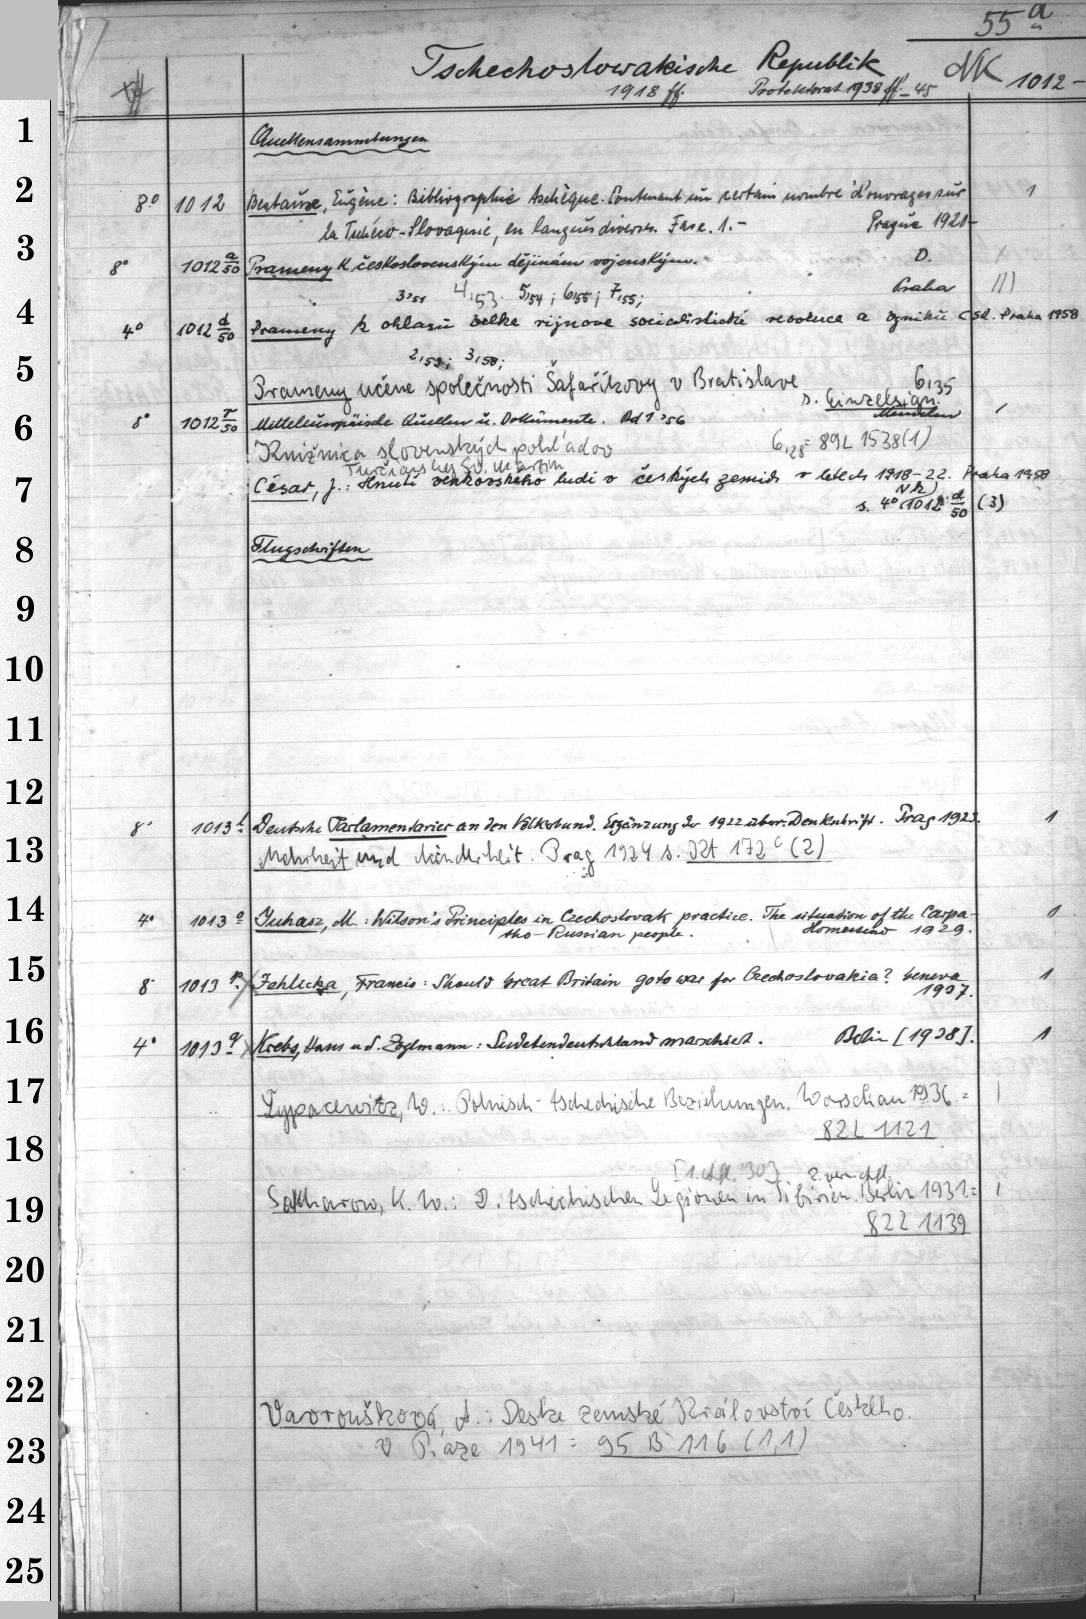 55 a
Tschechoslowakische Republik NK 1012 -
1918 ff. Protektorat 1938 ff - 45
1
Quellensammlungen
2
8° 1012 Bestaúx, Eugène: Bibliographie tschèque. Contenant un certain nombre d'ouvrages sur 1
la Tchéco-Slovaquie, en langues diverses. Fasc. 1. - Prague 1920 -
3
8° 1012 a/50 Prameny k československým dějinám vojenským. D. 1
3,51 4,53 5,54; 6,55; 7,55; Praha III
4
4° 1012 d/50 Prameny k ohlasu velké říjnové socialistické revoluce a vzniku ČSR. Praha 1958
2,59; 3,58;
5
Prameny učené společnosti Šafaříkovy v Bratislave 6,35
s. Einzelsign.
6
8° 1012 r/50 Mitteleuropäische Quellen u. Dokumente. Bd 1 '56 München 1
Knižnica slovenských pohľadov 6,28 = 89L 1538(1)
Turčiansky Sv. Martin
7
César, J.: Hnutí venkovského lidu v českých zemích v letech 1918-22. Praha 1958
s. 4° NK 1012 d/50 (3)
8
Flugschriften
9
10
11
12
8° 1013 l Deutsche Parlamentarier an den Völkerbund. Ergänzung der 1922 über. Denkschrift. Prag 1923. 1
13
Mehrheit und Minderheit. Prag 1924 s. Rt 172 c (2)
14
4° 1013 o Juhasz, M.: Wilson's Principles in Czechoslovak practice. The situation of the Carpa- 1
tho-Russian people. Homestead 1929.
15
8° 1013 p Jehlicka, Francis: Should Great Britain go to war for Czechoslovakia? Geneva 1
1937.
16
4° 1013 q Krebs, Hans u. E. Zoglmann: Sudetendeutschland marschiert. Berlin [1938]. 1
17
Lypacewicz, W.: Polnisch-tschechische Beziehungen. Warschau 1936 = 1
82L 1121
18
[1. Aufl. '30] 2. Aufl.
19
Sakharow, K. W.: D. tschechischen Legionen in Sibirien. Berlin 1931. = 1
82L 1139
20
21
22
Vavroušková, A.: Desky zemské Království Českého.
23
V Praze 1941 = 95 B 116 (1,1)
24
25